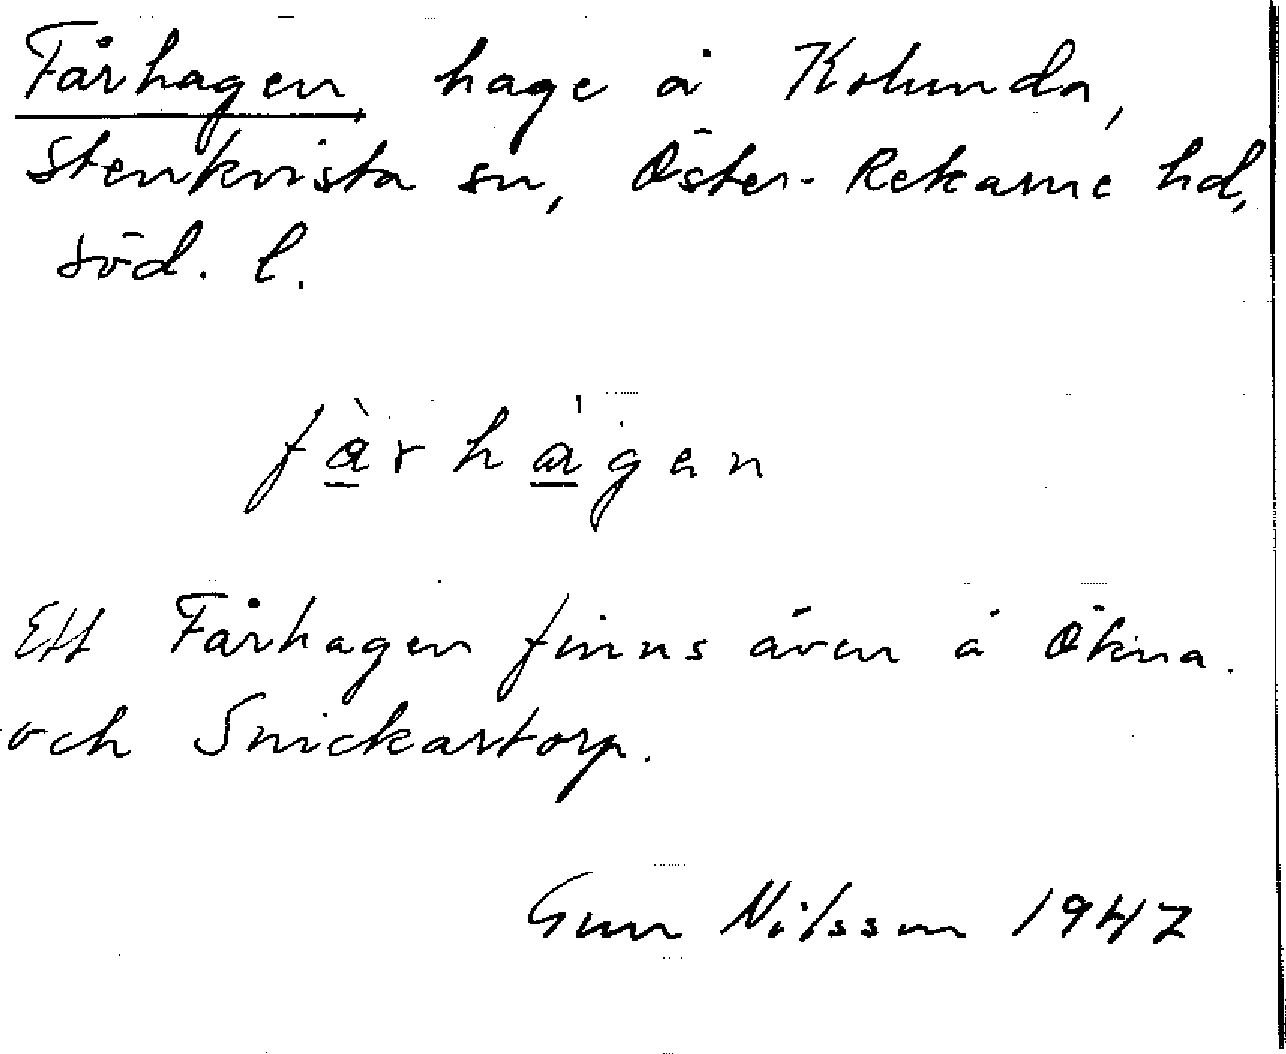 Fårhagen, hage å Kolunda,
Stenkvista sn, Öster-Rekarne hd,
söd. l.
fàrhágen
Ett Fårhagen finns även å Ökna.
och Snickartorp.
Gun Nilsson 1947